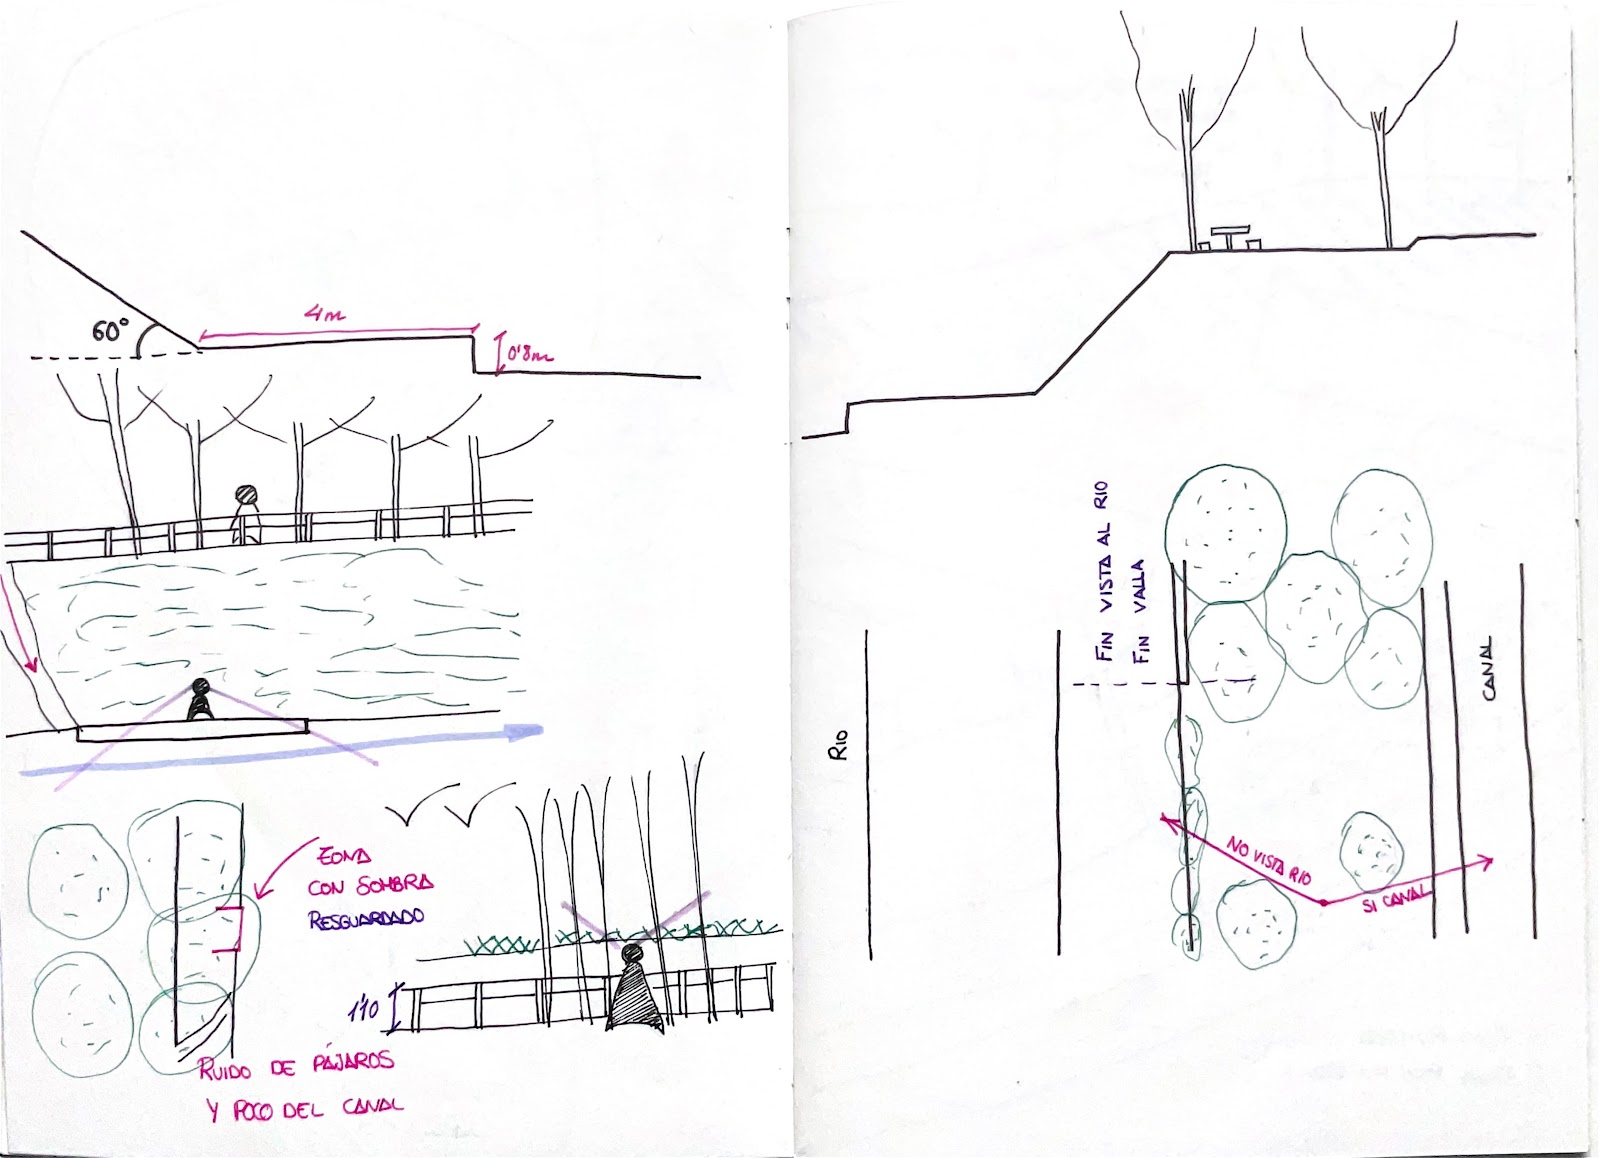 60°
4m
0'8m
ZONA
CON SOMBRA
RESGUARDADO
1'10
RUIDO DE PÁJAROS
Y POCO DEL CANAL
FIN VISTA AL RIO
FIN VALLA
RIO
CANAL
NO VISTA RIO
SI CANAL